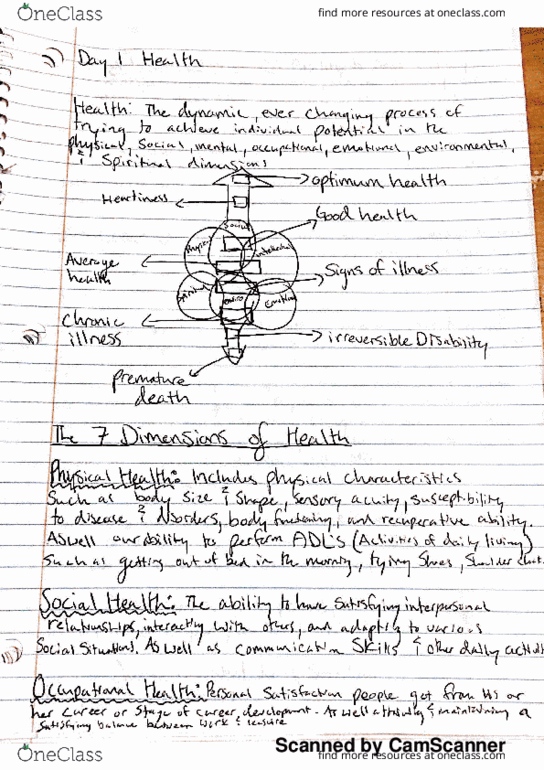 OneClass
find more resources at oneclass.com
Day 1 Health
Health: The dynamic, ever changing process of
trying to achieve individual potential in the
physical, social, mental, occupational, emotional, environmental,
& Spiritual dimensions
optimum health
Heartiness
Good health
Social
Physical
Intellectual
Average
health
Signs of illness
Spiritual
Enviro
Emotional
Chronic
illness
irreversible Disability
Premature
death
The 7 Dimensions of Health
Physical Health: Includes physical characteristics
Such as body size & Shape, sensory acuity, susceptibility
to disease & disorders, body functioning, and recuperative ability.
As well our ability to perform ADL's (Activities of daily living)
Such as getting out of bed in the morning, tying Shoes, Shoulder
Social Health: The ability to have Satisfying interpersonal
relationships, interacting with others, and adapting to various
Social Situations. As well as communication Skills & other daily
Occupational Health: Personal Satisfaction people get from his or
her Career or Stage of career development. As well & maintaining a
Satisfying balance between work & leisure
Scanned by CamScanner
OneClass
find more resources at oneclass.com